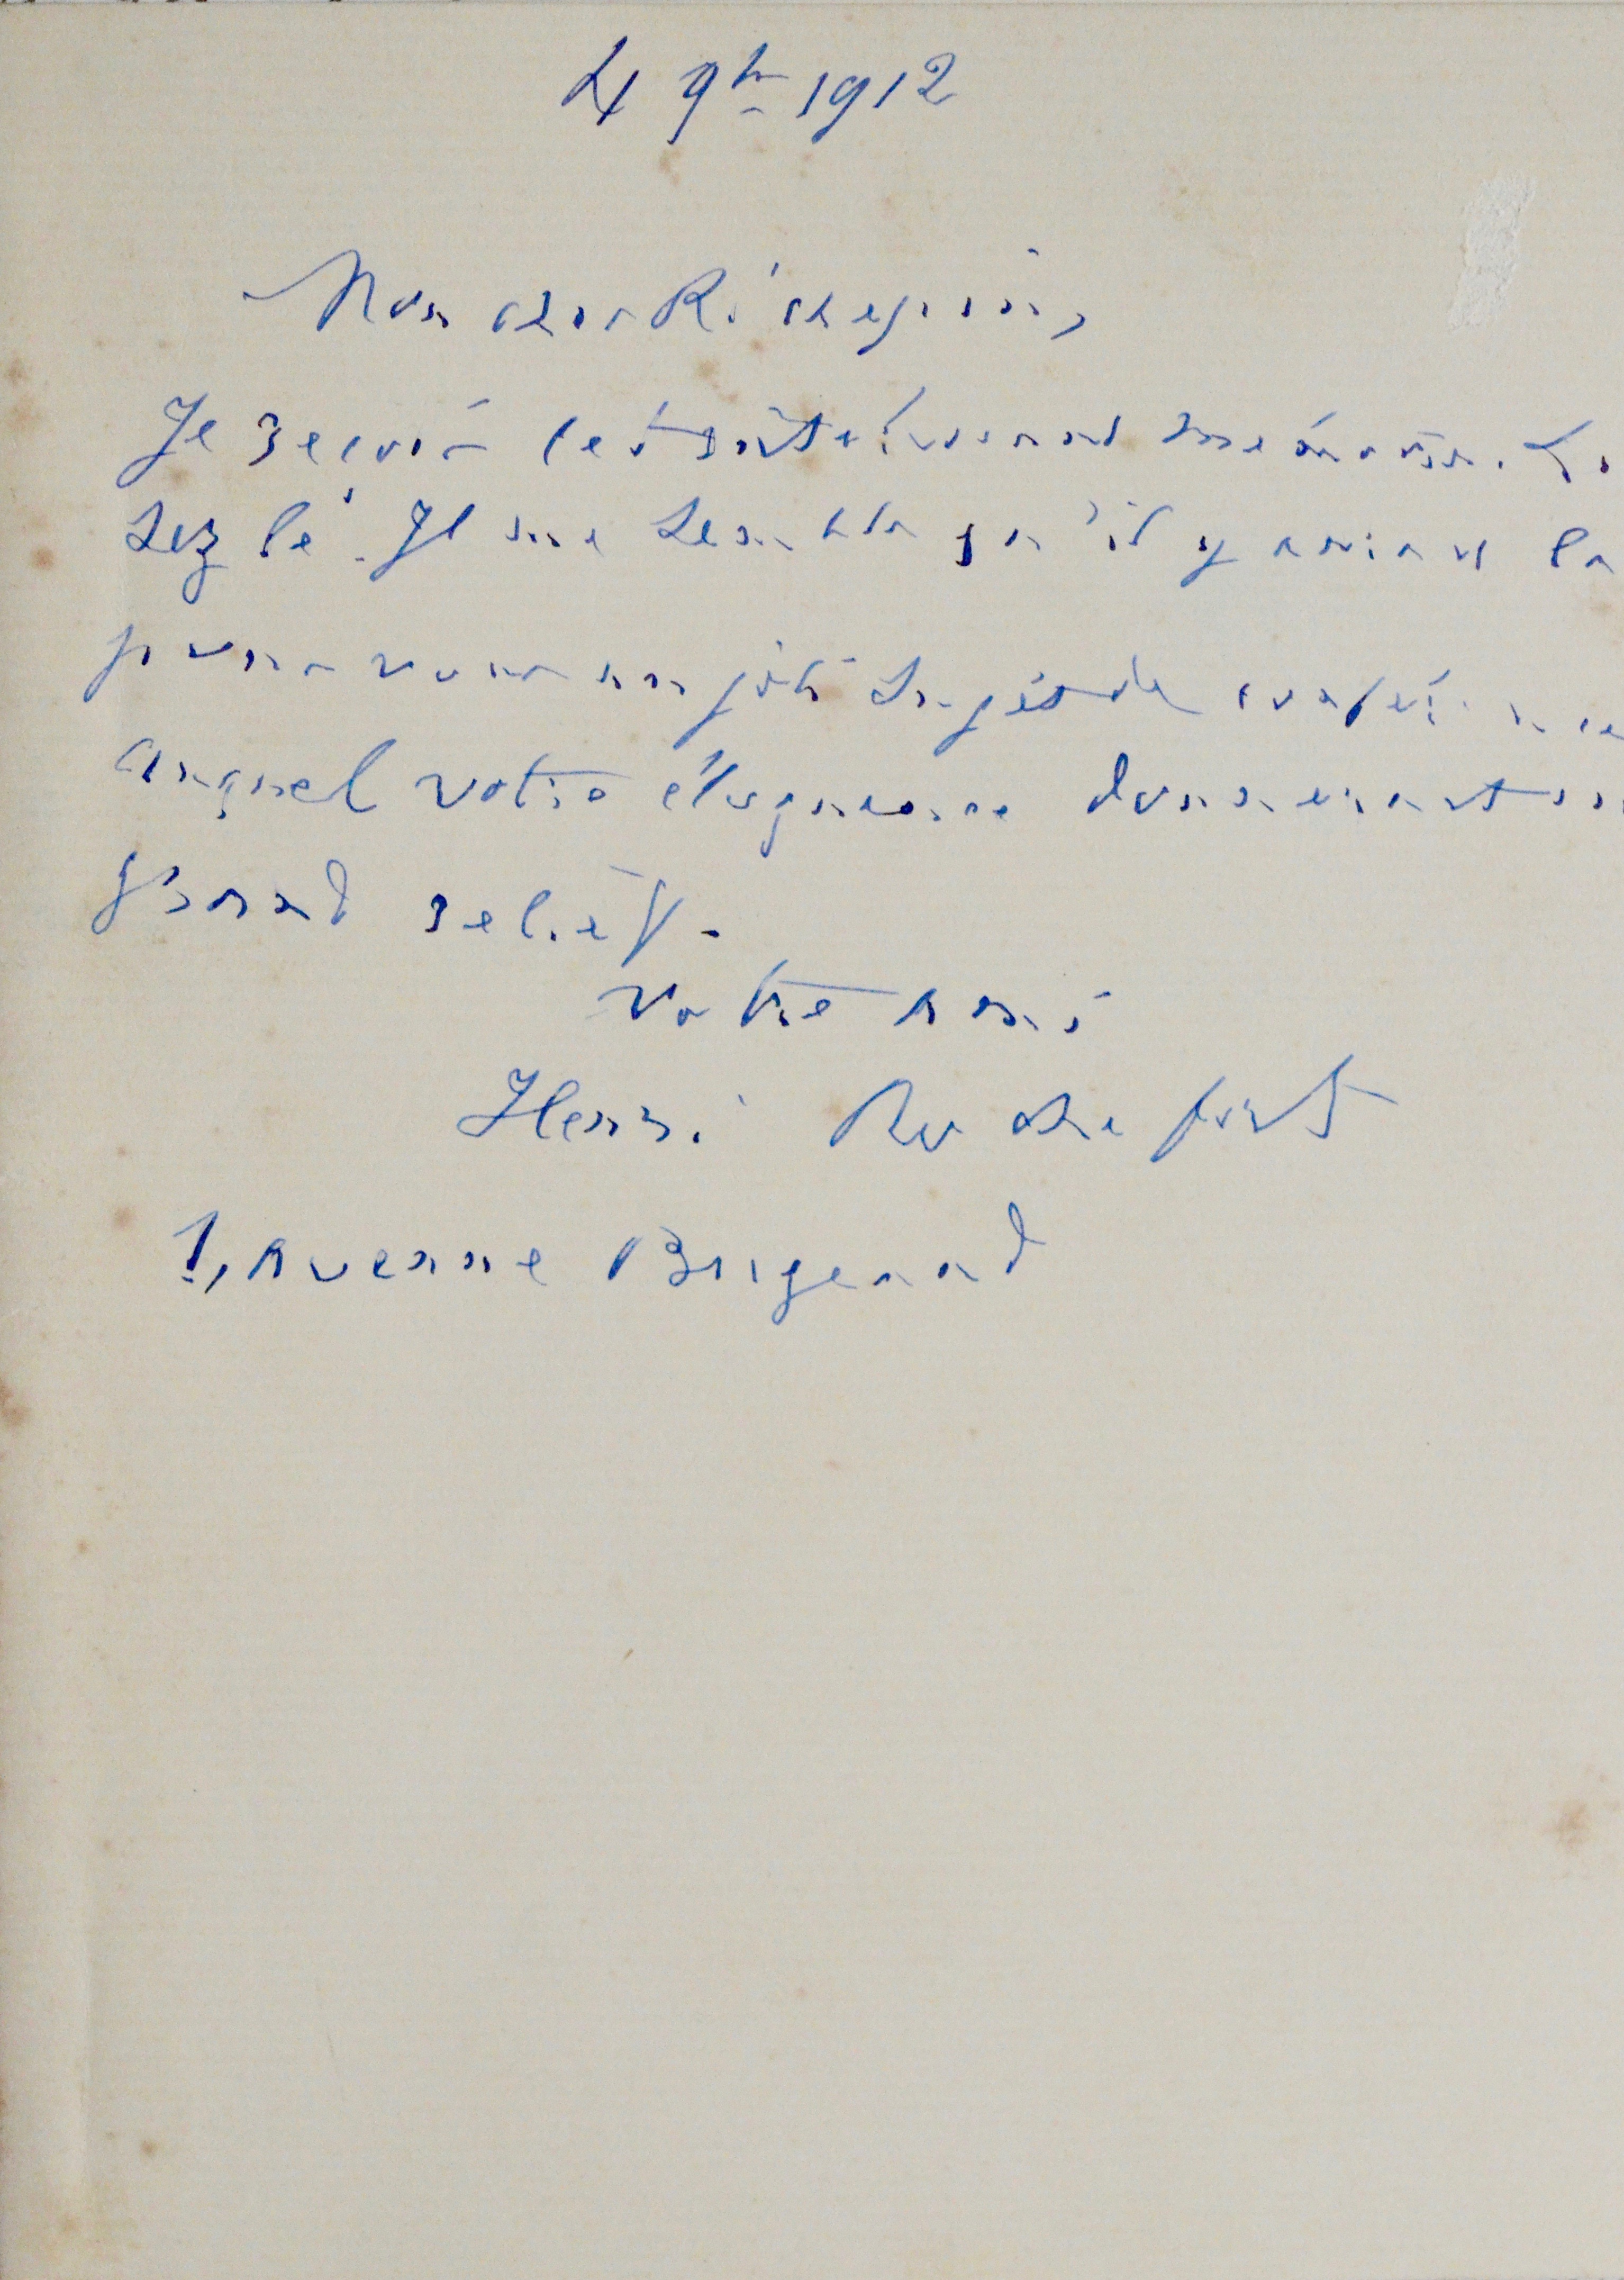 4 9bre 1912
Mon cher Richepin,
Je reçois cet intéressant mémoire. Li
sez le. Il me semble qu'il y aurait là
pour vous un joli sujet de conférence
auquel votre éloquence donnerait un
grand relief.
Votre ami
Henri Rochefort
1, avenue Bugeaud